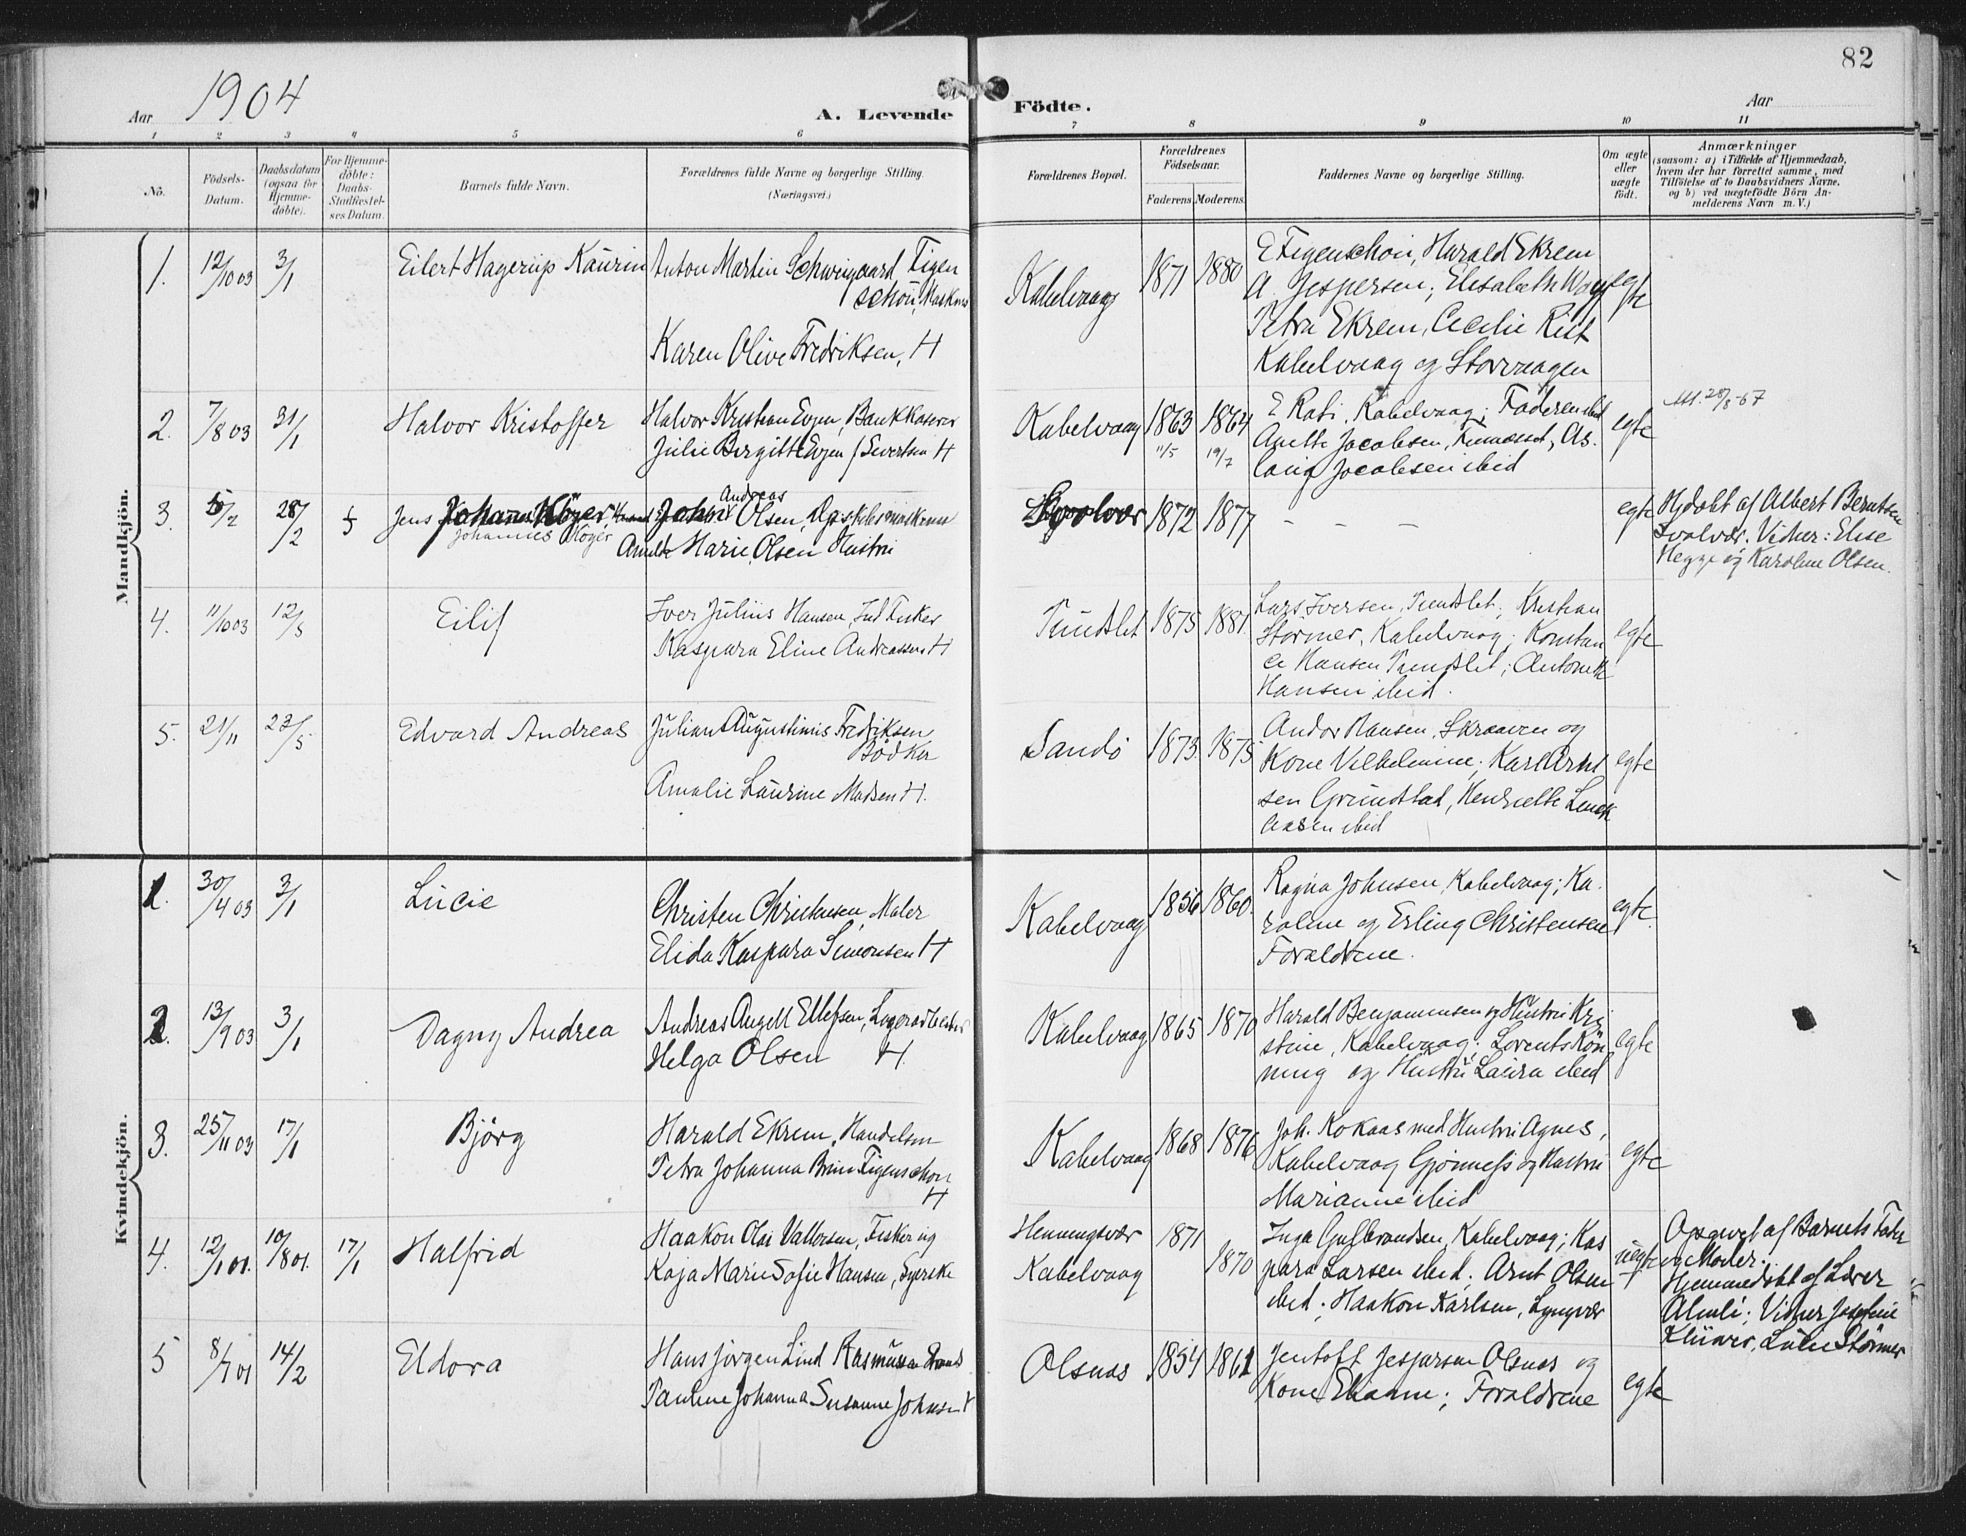 82
Aar 1904
A. Levende Födte.
Aar
1 2 3 4 5 6 7 8 9 10 11
No.
Födsels-
Datum.
Daabsdatum
(ogsaa for
Hjemme-
döbte).
For Hjemme-
döbte:
Daabs-
Stadfæstel-
ses Datum.
Barnets fulde Navn.
Forældrenes fulde Navne og borgerlige Stilling.
(Næringsvei.)
Forældrenes Bopæl.
Forældrenes
Födselsaar.
Faderens. Moderens.
Faddernes Navne og borgerlige Stilling.
Om ægte
eller
uægte
födt.
Anmærkninger
(saasom: a) i Tilfælde af Hjemmedaab,
hvem der har forrettet samme, med
Tilföielse af to Daabsvidners Navne,
og b) ved uægtefödte Börn An-
melderens Navn m. V.)
Mandkjön.
1. 12/10 03 3/1 Eilert Hagerup Kaurin
Anton Martin Schweigaard Figen
schou, Maskinis
Karen Olive Fredriksen, H
Kabelvaag 1871 1880
E Figenschou, Harald Ekrem
A. Jespersen; Elisabeth Waag
Petra Ekrem, Cecilie Rist
Kabelvaag og Storvaagen
egte
2. 7/8 03 31/1 Halvor Kristoffer
Halvor Kristian Evjen, Bankkaserer
Julie Birgitte Evjen f Sivertsen H
Kabelvaag 1863 11/5 1864 19/7
E Rabi, Kabelvaag; Faderen ibid
Anette Jacobsen, As-
laug Jacobsen ibid
egte
3. 5/2 28/2 Jens Johannes Höger
Johannes Höger
Andreas
Johan Olsen,
Marie Olsen Hustru
Svolvær 1872 1877
– – –
egte
Hjdøbt af Albert Berntsen
Svolvær. Vidner: Elise
Hegge og Karoline Olsen.
4. 11/10 03 12/5 Eilif
Iver Julius Hansen, Ind Fisker
Kaspara Eline Andreassen H
Tundslet 1875 1881.
Lars Iversen, Tundslet; Kristian
Störmer, Kabelvaag; Konstan
ce Hansen Tundslet; Antonette
Hansen ibid.
egte
5. 21/11 23/5 Edvard Andreas
Julian Augustinus Fredriksen
Bödker
Amalie Laurine Madsen H.
Sandö 1873. 1875
Andor Hansen, Skraaven og
Kone Vilhelmine; Karl Arnt
sen Grundstad, Henriette
ibid
egte
Kvindekjön.
1. 30/4 03 3/1 Lucie
Christen Christensen, Maler
Elida Kaspara Simonsen H
Kabelvaag 1856 1860.
Ragna Johnsen, Kabelvaag; Ka-
roline og Erling Christensen
Forældrene.
egte.
2. 13/9 03 3/1 Dagny Andrea
Andreas Angell Ellefsen, Lagerarbeider
Helga Olsen H.
Kabelvaag 1865 1870
Harald Benjaminsen og Hustru Kri
stine, Kabelvaag; Lorents Rön
ning og Hustru Laura ibid
egte
3. 25/11 03 17/1 Björg
Harald Ekrem, Handelsm
Petra Johanna Brun Figenschou
H
Kabelvaag 1868 1876
Joh. Kokaas med Hustru Agnes,
Kabelvaag Gjönness og Hustru
Marianne ibid
egte
4. 12/1 01. 10/8 01. 17/1 Halfrid
Haakon Olai Valdersen, Fisker og
Kaja Marie Sofie Hansen, Syerske
Henningsvær 1871
Kabelvaag 1870
Inga Gulbrandsen, Kabelvaag; Kas
para Larsen ibid. Arnt Olsen
ibid; Haakon Karlsen, Lyngvær
uegte
Opgivet af Barnets Fader
og Moder.
Hjemmedøbt af Lærer
Almli; Vidner Josefine
Klüwer, Lulu Störmer
5 8/7 01 14/2 Eldora
Hans Jörgen Lind Rasmussen
Pauline Johanna Susanne Johnsen H
Olsnas 1854 1861
Jentoft Jespersen Olsnas og
Kone Elianne; Forældrene
egte